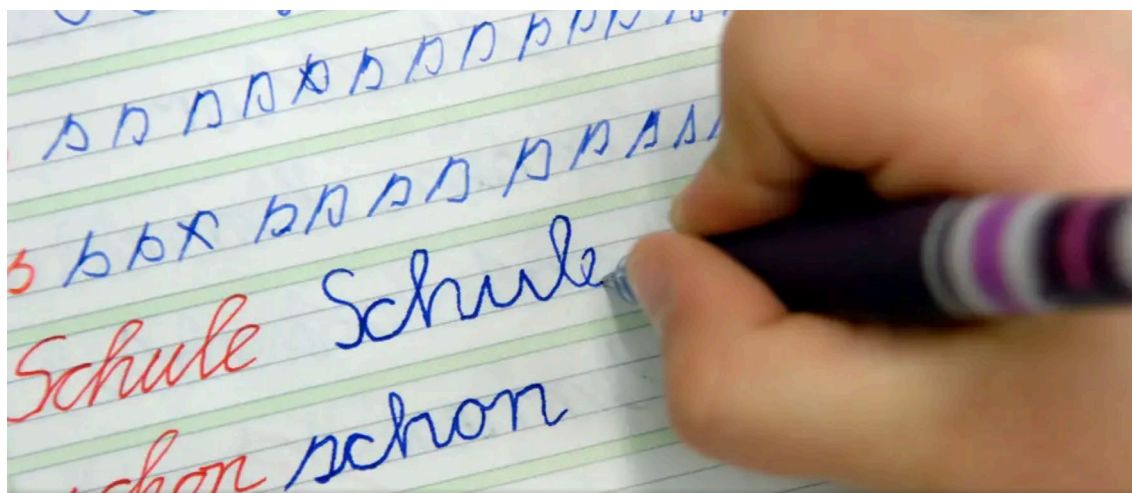 s s s s s s s s s s s
s s s s s s s s s s s s
Schule Schule
schon schon